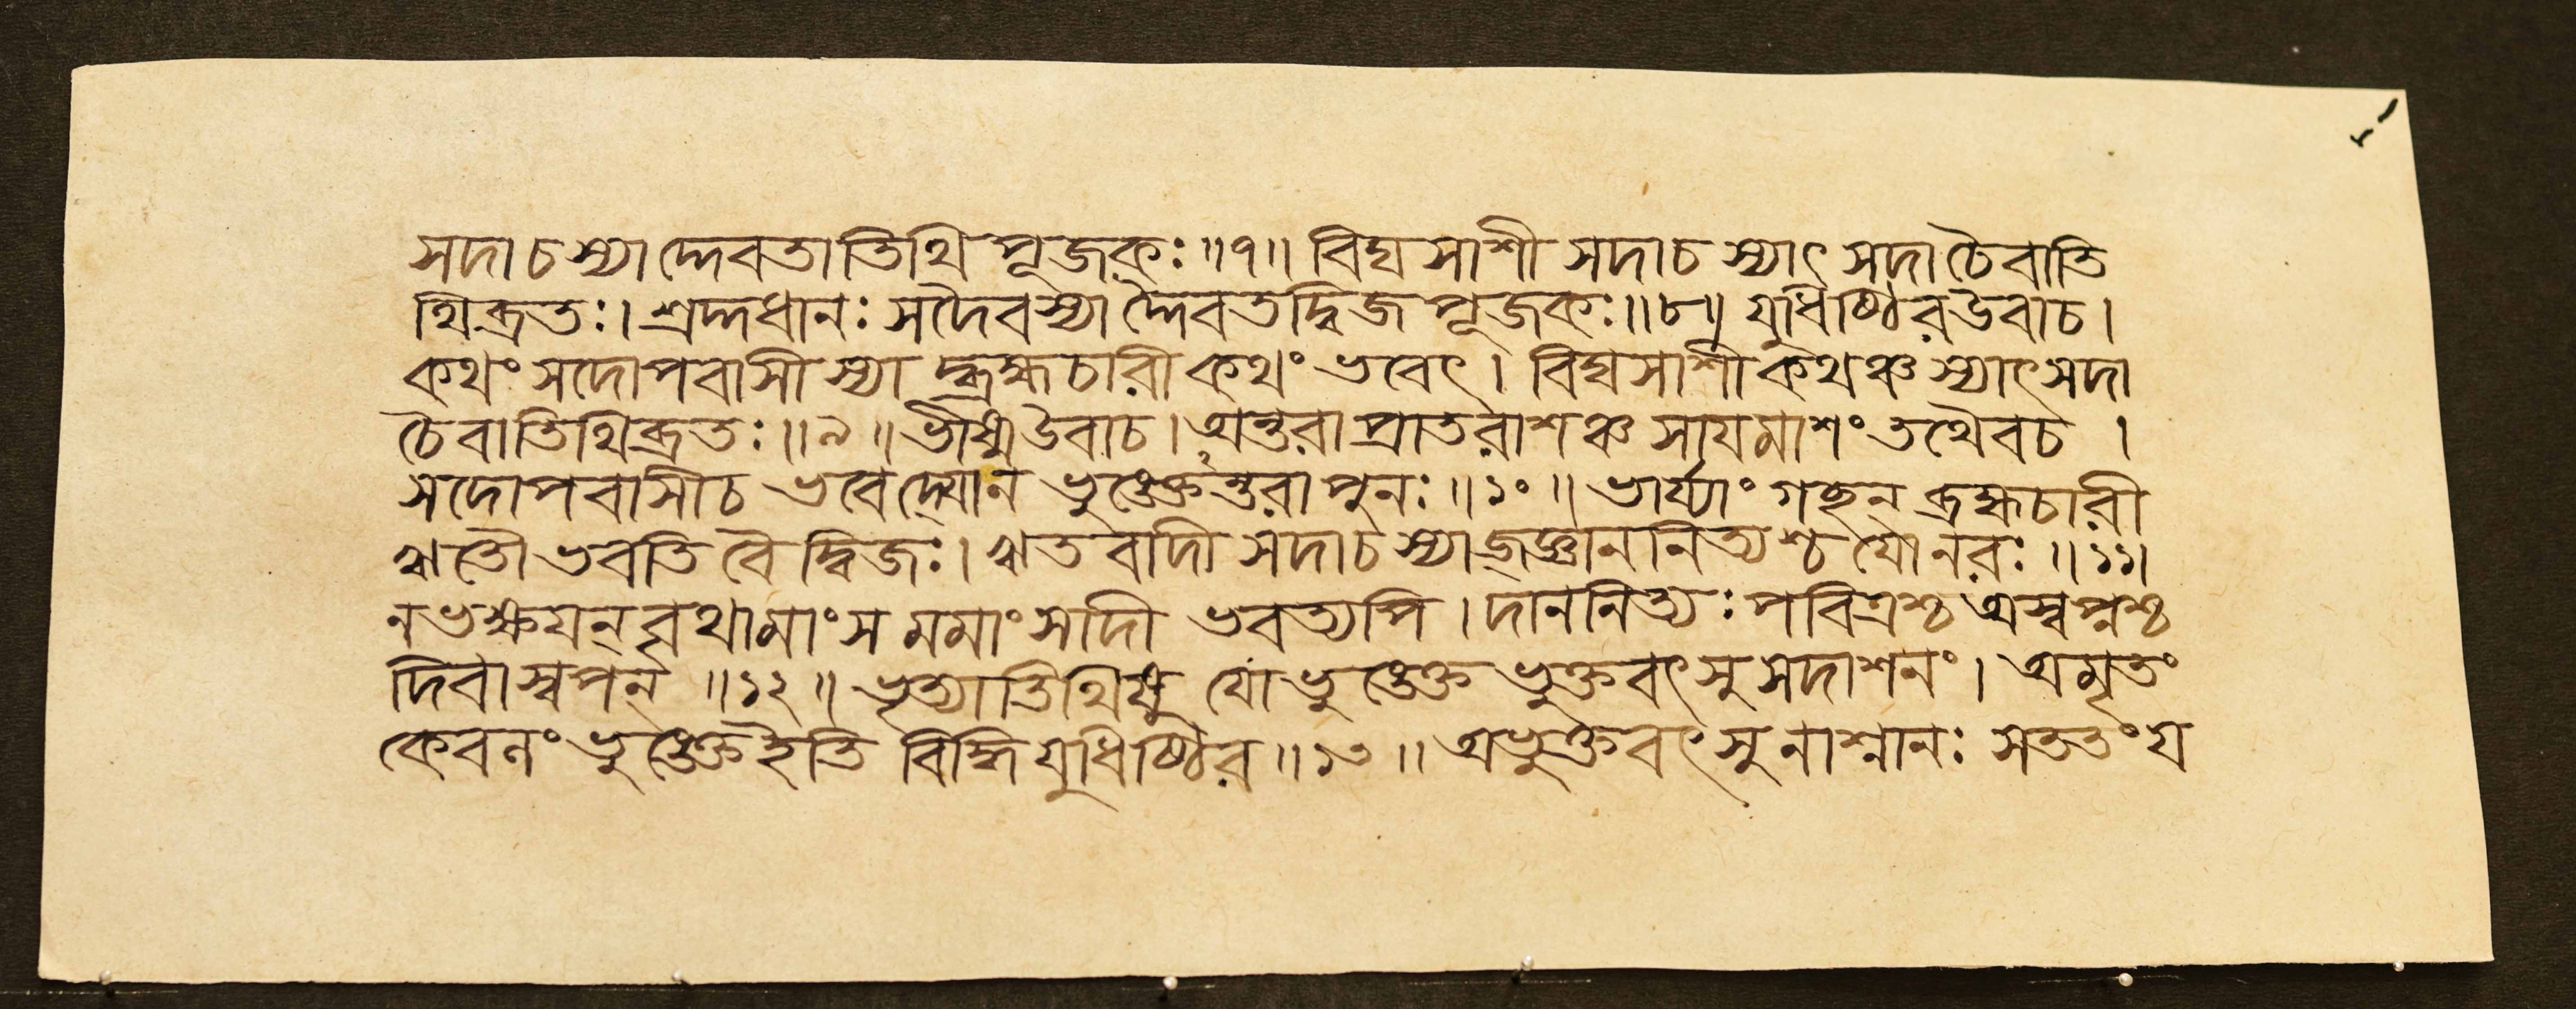 সদাচস্যাদ্দেবতাতিথিপূজকঃ॥৭॥ বিঘসাশী সদাচ স্যাৎ সদাচৈবাতি
থিব্রতঃ। শ্রদ্দধানঃ সদৈবস্যাদ্দৈবতদ্বিজপূজকঃ॥৮॥ যুধিষ্ঠিরউবাচ।
কথং সদোপবাসী স্যাদ্ব্রহ্মচারী কথং ভবেৎ। বিঘসাশী কথঞ্চ স্যাৎ সদা
চৈবাতিথিব্রতঃ॥৯॥ ভীষ্মউবাচ। অন্তরা প্রাতরাশঞ্চ সাযমাশং তথৈবচ।
সদোপবাসীচ ভবেদ্যোন ভুঙ্ক্তেঽন্তরা পুনঃ॥১০॥ ভার্য্যাং গছন্ব্রহ্মচারী
ঋতৌ ভবতি বৈ দ্বিজঃ। ঋতবাদী সদাচ স্যাজ্জ্ঞাননিত্যশ্চ যোনরঃ॥১১।
নভক্ষযন্বৃথামাংসমমাংসাদী ভবত্যপি। দাননিত্যঃ পবিত্রশ্চ অস্বপ্নশ্চ
দিবাস্বপন্॥১২॥ ভৃত্যাতিথিষু যো ভুঙ্ক্তে ভুক্তবৎসু সদাশনং। অমৃতং
কেবলং ভুঙ্ক্তে ইতি বিদ্ধি যুধিষ্ঠির॥১৩॥ অভুক্তবৎসু নাশ্নানঃ সততং য